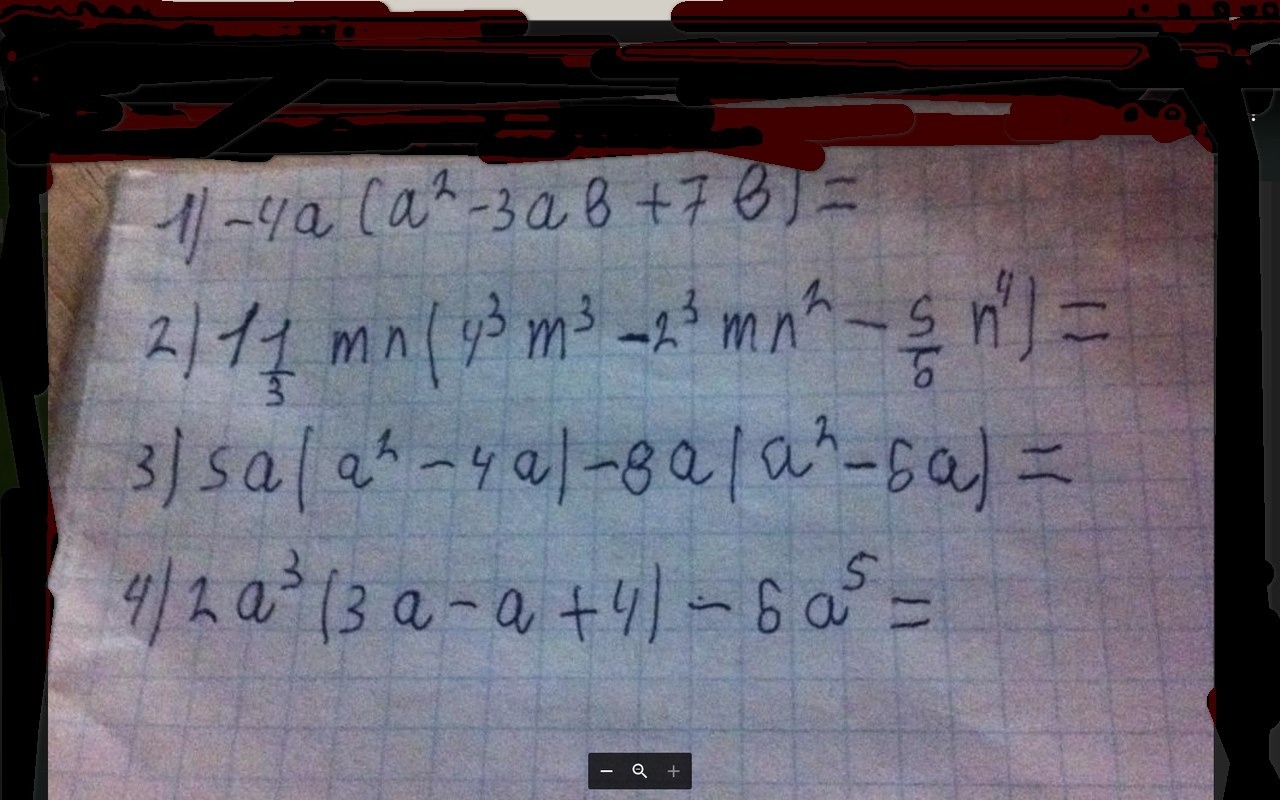 1) -4a (a² -3aв +7в) =
2) 1 1/3 mn (4³m³ -2³mn² - 5/6 n⁴) =
3) 5a (a² - 4a) - 8a (a² - 6a) =
4) 2a³ (3a - a + 4) - 6a⁵ =